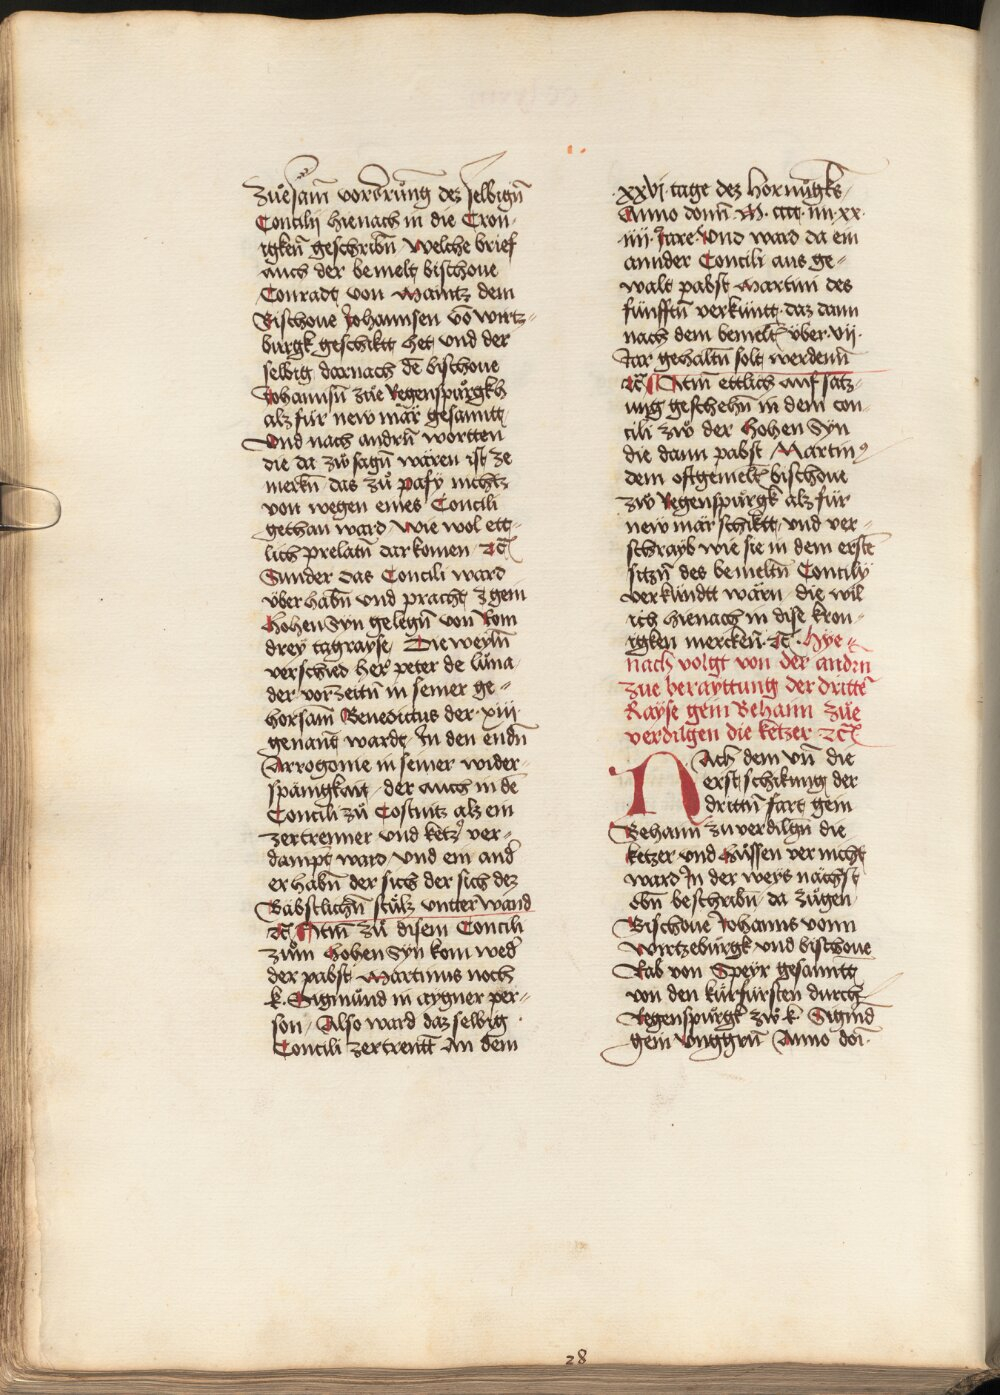 zuͤesam̄ vordruͦng dez selbign̄
Concilij hienach in die Cron⸗
igken̄ geschribn̄ Welche brief
auch der bemelt bischoue
Conradt von Maintz dem
Bischoue Johannsen vō wirtz⸗
burgk geschiktt het Vnd der
selbig darnach dē bischoue
Johannsn̄ zuͤe Regenspuͦrgkh
alz für new mär gesanntt
Vnd nach andrn̄ wortten
die da zwͦ sagn̄ wären ist ze
merkn̄ das zuͦ pafÿ nichtz
von wegen eines Concili
gethan ward Wie wol ett⸗
lich prelatn̄ dar komen ꝛc̄
Sunder das Concili ward
über habn̄ vnd pracht z gein
hohen Syn gelegn̄ von Rom
drey tagrayse / Die weyln̄
verschied her peter de luna
der vor zeitn̄ in seiner ge⸗
horsam̄ Benedictus der ·xiii·
genan̄t wardt In den endn̄
Arrogonie in seiner wider⸗
spänigkait / der auch in dē
Concili zuͦ Costnitz alz ein
zertrenner vnd ketz̕ ver⸗
dampt ward / vnd ein and̕
er habn̄ der sich der sich dez
Bäbstlichn̄ stuͤlz vntter wand
ꝛc̄ Itm̄ zuͦ disem Concili
zuͦm hohen Syn kom wed̕
der pabst Martinus noch
k. Sigmuͦnd in aygner per⸗
son / Also ward daz selbig
Concili zertrentt An dem
·xxvj· tage dez hornuͦgks
Anno domī M· cccc· iiii· xx·
·iiii· Jare· Vnd ward da ein
annder Concili aus ge⸗
walt pabst Martini des
fünfftn̄ verküntt· daz dann
nach dem bemeltn̄ über ·vii·
Jar gehaltn̄ solt werdenn̄
ꝛc̄ Itm̄ ettlich auf satz⸗
ung geschehn̄ in dem con⸗
cili zwͦ der hohen Syn
die dann pabst Martinꝰ
dem oftgemeltn̄ bischoue
zw Regenspurgk alz für
new mär schiktt / vnd ver⸗
schrayb wie sie in dem erstē
sitzn̄ des bemeltn̄ Concilÿ
verkündtt wärn / die wil
ich hienach in dise kron⸗
igken mercken̄ ꝛc̄ · Hÿe⸗
nach volgt von der andrn
zue beraÿttung der drittn̄
Raÿse gein Behann zuͤe
verdilgen die ketzer ꝛc̄
Nach dem vn̄ die
erst schikung der
drittn̄ fart gein
Behann zu verdilgn̄ die
ketzer vnd hüssen ver nicht
ward In der weÿs nächst
obn̄ beschribn̄ da zuͤgen
Bischoue Johanns vonn
Wirtzeburgk vnd bischoue
Rab von Speÿr gesanntt
von den kürfürsten durch
Regenspuͦrgk zwͦ k̕ Sigmd̄
gein Vnggrn̄ Anno doī·
28